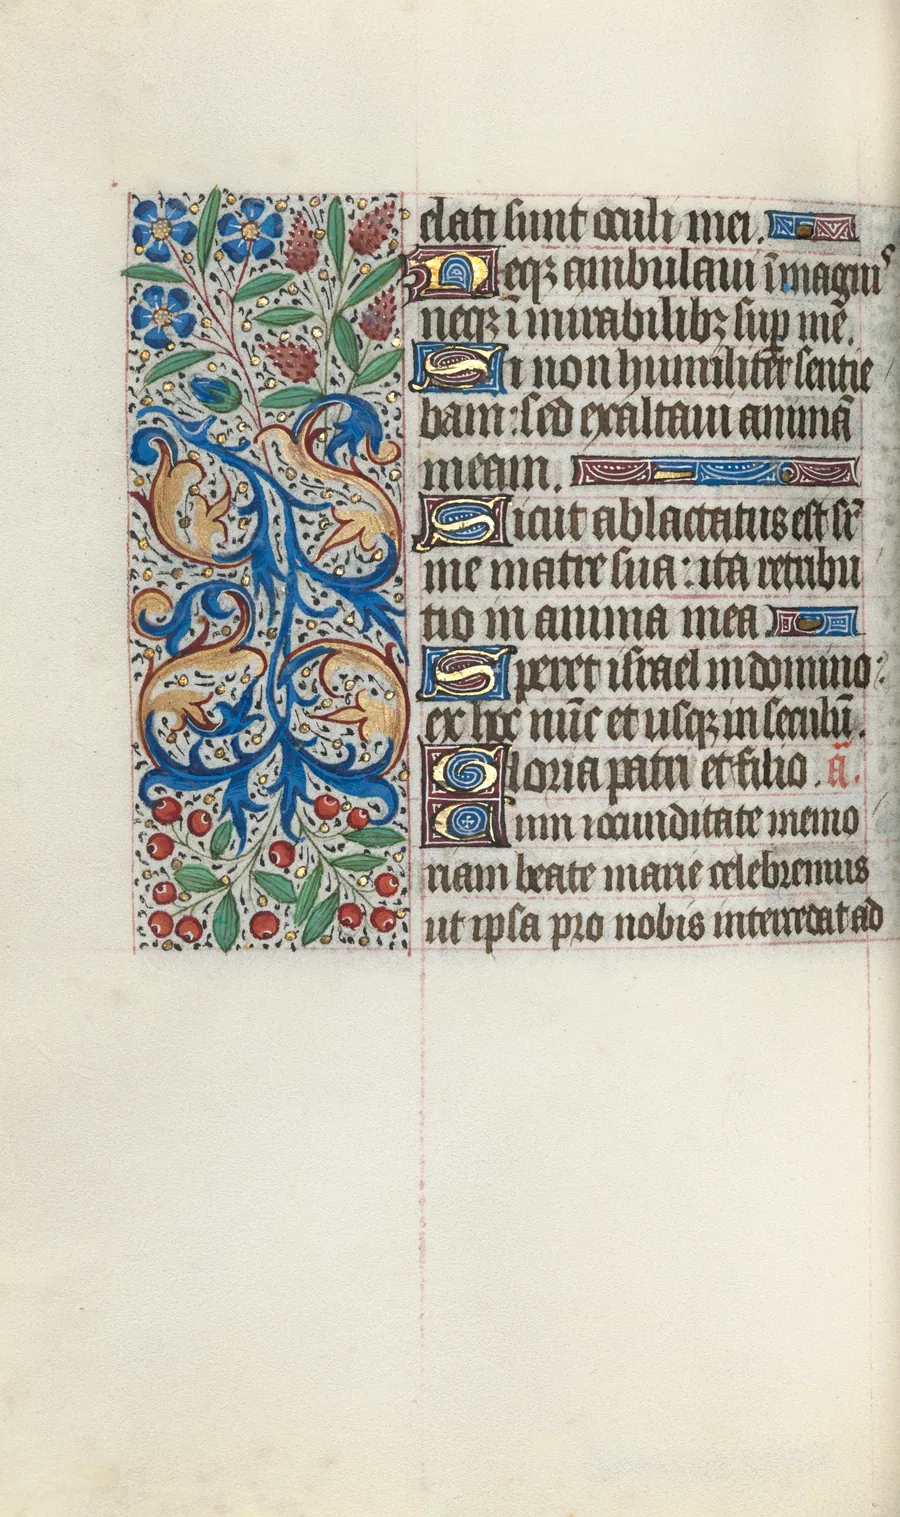 elati sunt oculi mei.
Neqꝫ ambulaui ī magnis
neqꝫ ī mirabilibꝫ sup mē.
Si non humilit̄er sentie
bam : sed exaltaui animā
meam.
Sicut ablactatus est sr̄
me matre sua : ita retribu
tio in anima mea
Speret israel in domino :
ex hoc nūc et usqꝫ in seculū.
Gloria patri et filio . ā.
Cum iocunditate memo
riam beate marie celebremus
ut ipsa pro nobis intercedat ad